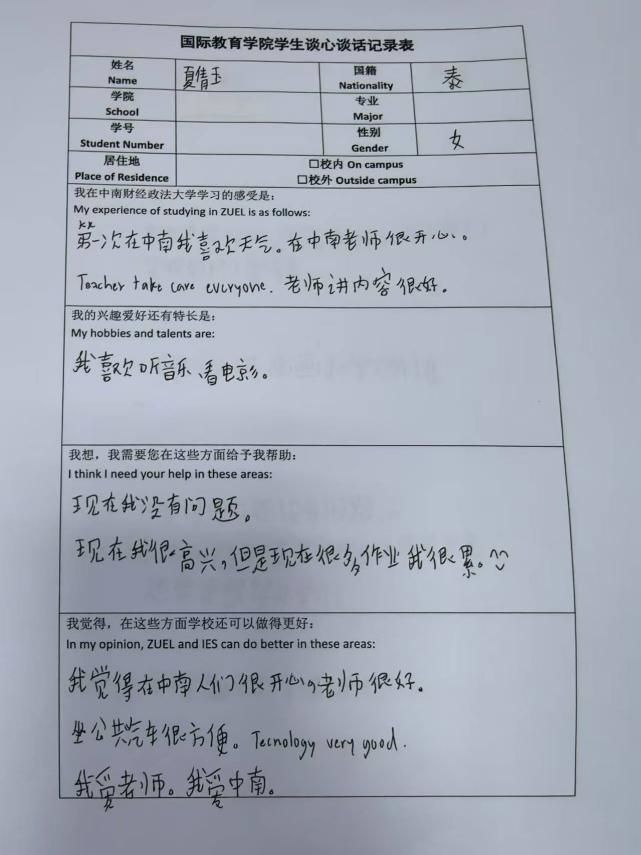 国际教育学院学生谈心谈话记录表
姓名 夏倩玉 国籍 泰
Name Nationality
学院 专业
School Major
学号 性别 女
Student Number Gender
居住地 □校内 On campus
Place of Residence □校外 Outside campus
我在中南财经政法大学学习的感受是:
My experience of studying in ZUEL is as follows:
第一次在中南我喜欢天气。在中南老师很开心。
Teacher take care everyone. 老师讲内容很好。
我的兴趣爱好还有特长是:
My hobbies and talents are:
我喜欢听音乐、看电影。
我想,我需要您在这些方面给予我帮助:
I think I need your help in these areas:
现在我没有问题。
现在我很高兴,但是现在很多作业我很累。
我觉得,在这些方面学校还可以做得更好:
In my opinion, ZUEL and IES can do better in these areas:
我觉得在中南人们很开心。老师很好。
坐公共汽车很方便。Tecnology very good.
我爱老师。我爱中南。